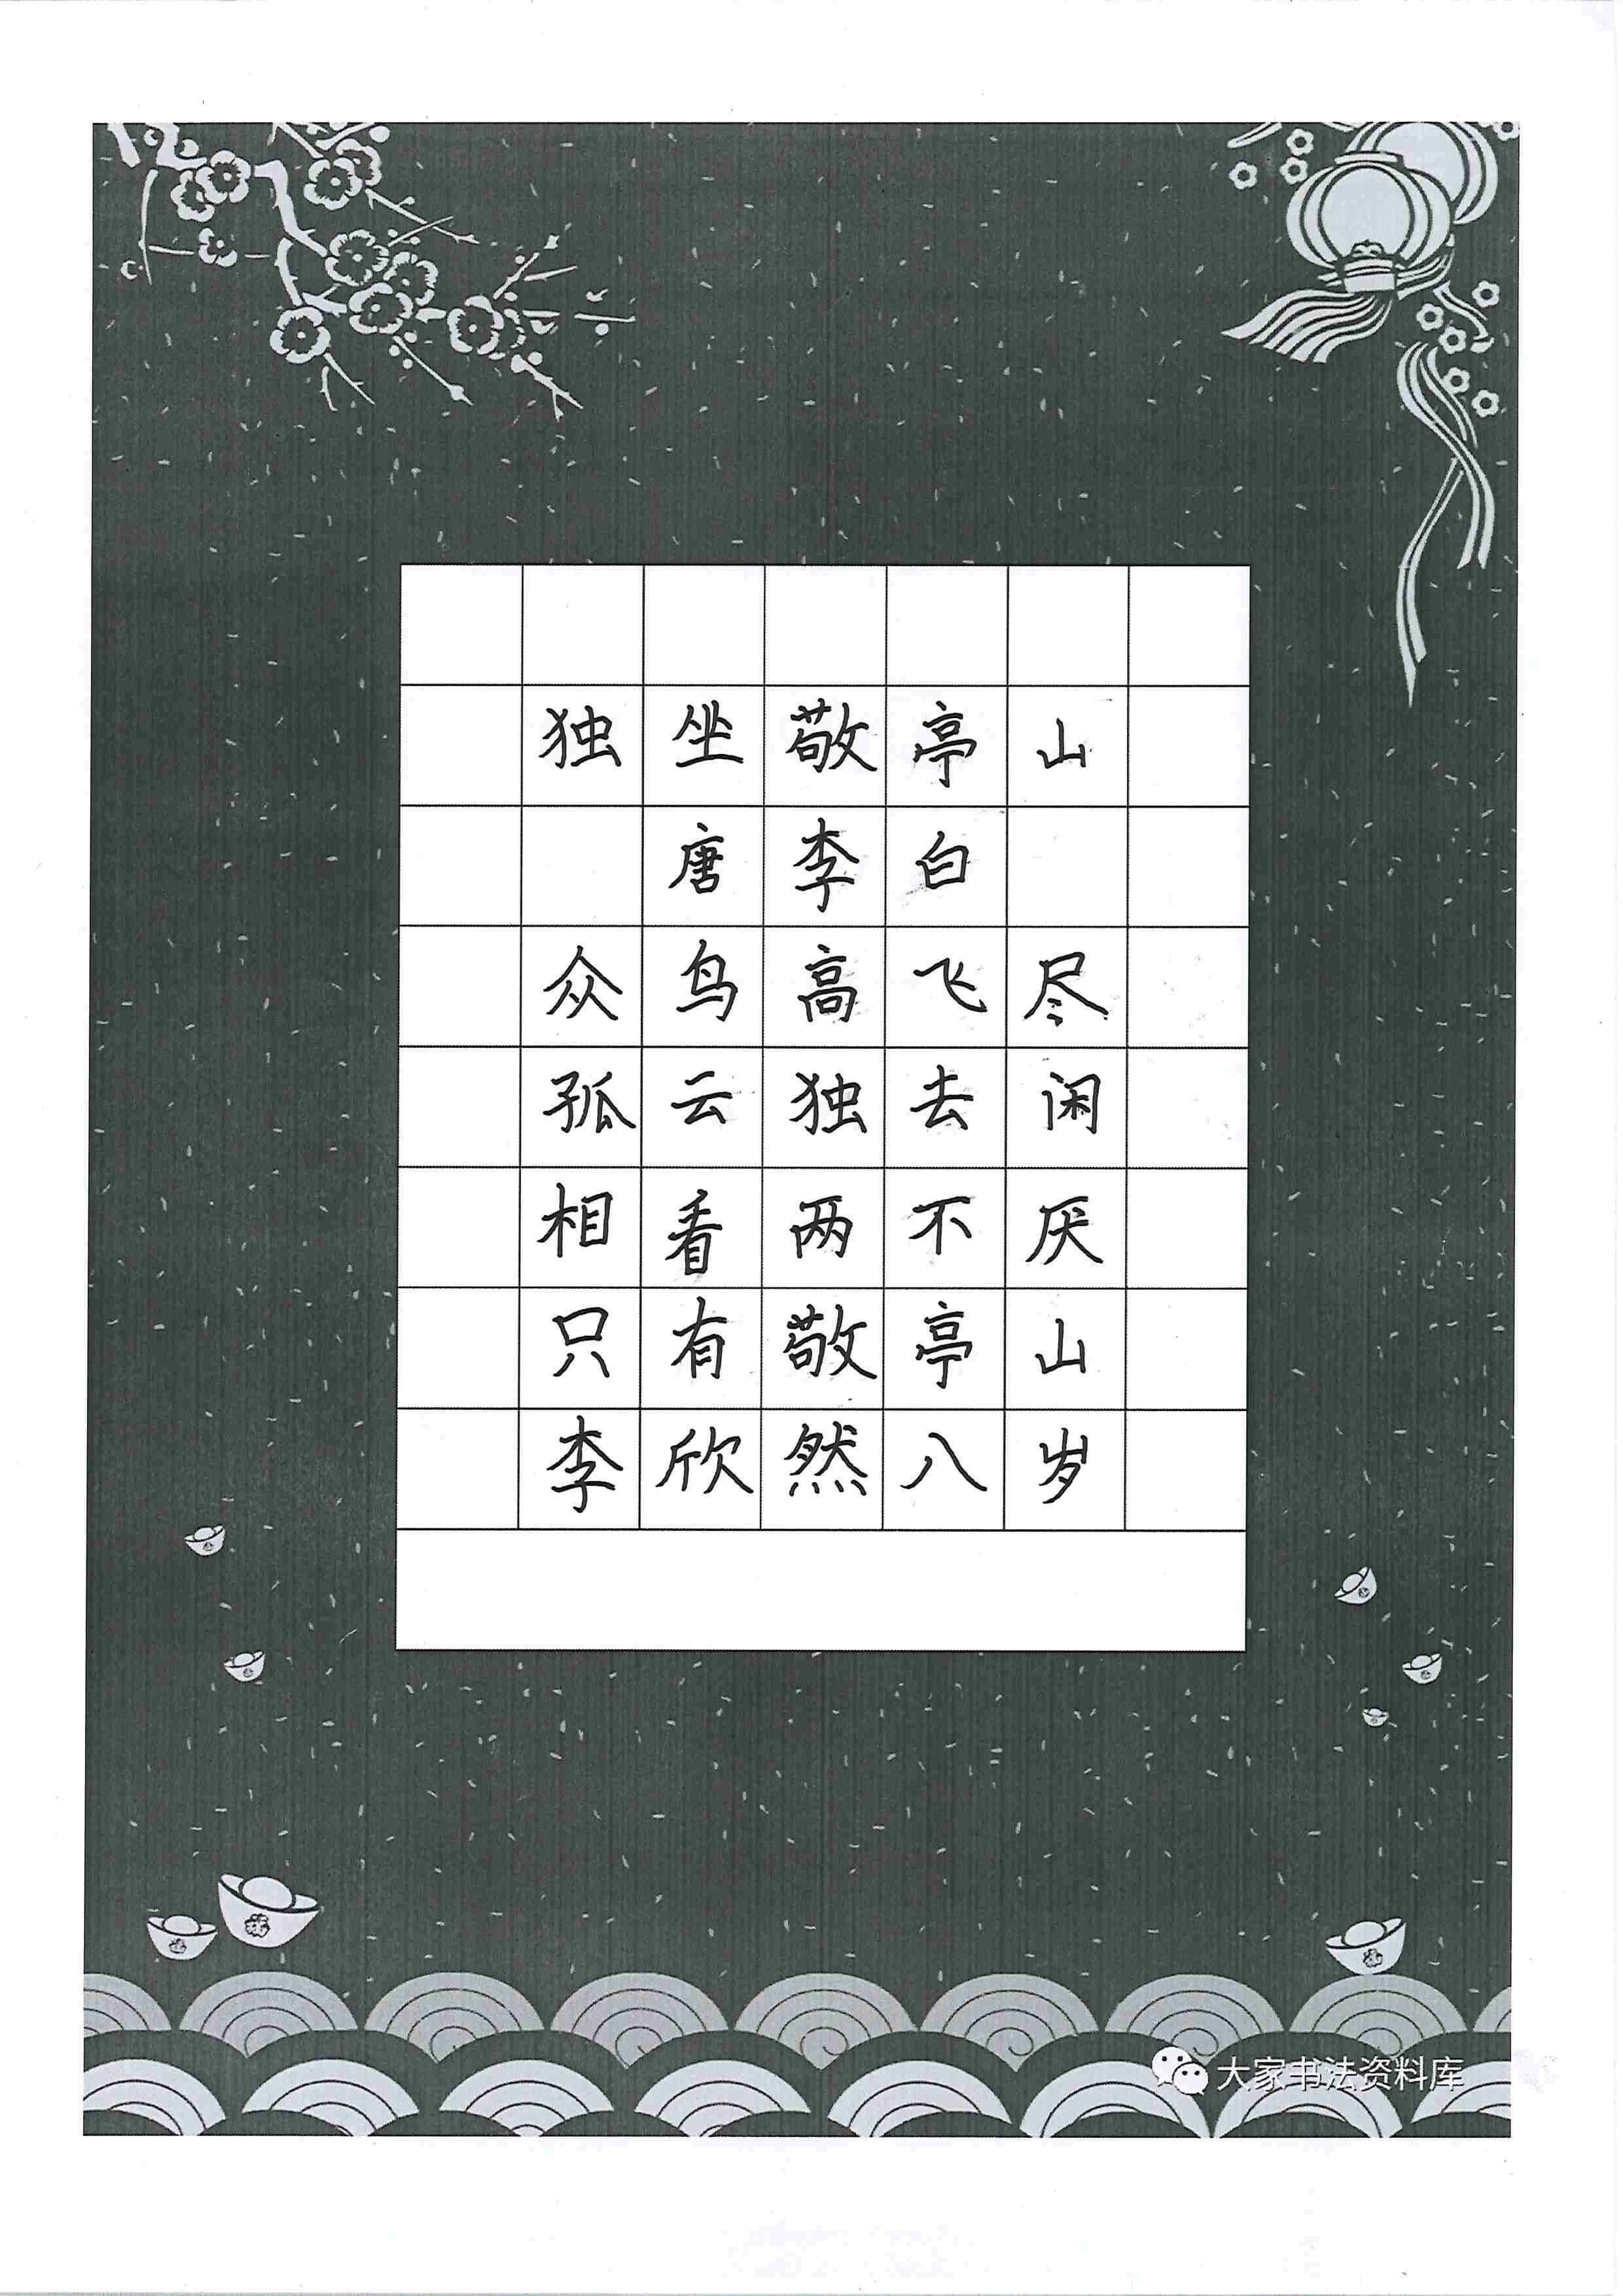 独坐敬亭山
唐李白
众鸟高飞尽
孤云独去闲
相看两不厌
只有敬亭山
李欣然八岁
大家书法资料库